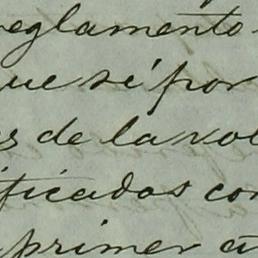 reglamento
que si por
de la vol
ificados con
primer a